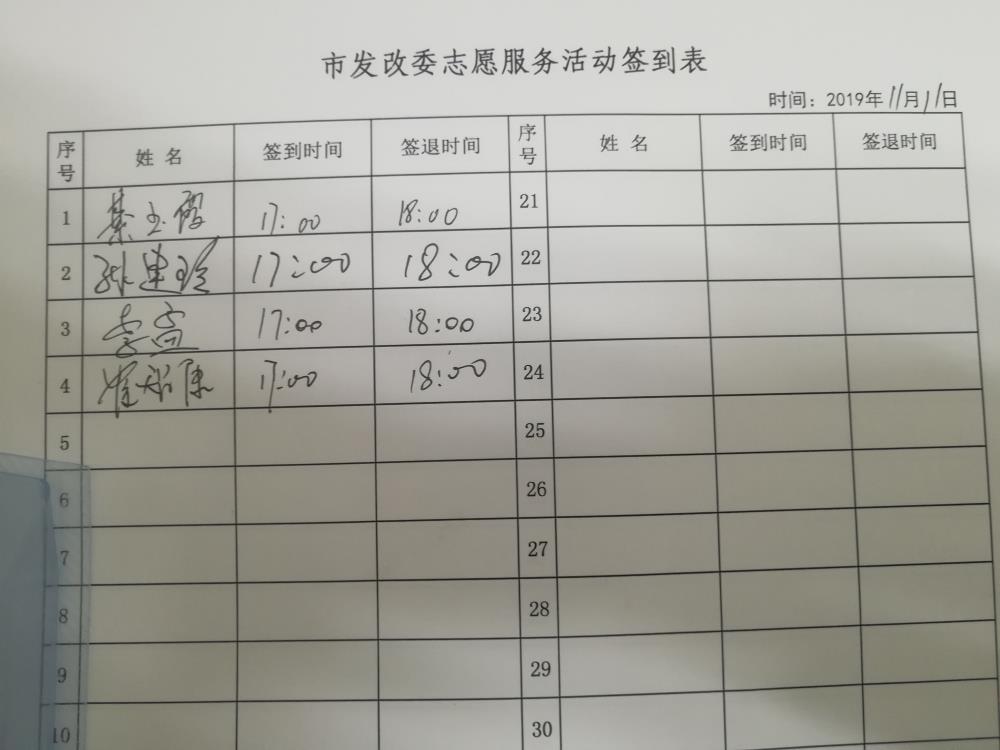 市发改委志愿服务活动签到表
时间：2019年11月11日
序号 姓名 签到时间 签退时间 序号 姓名 签到时间 签退时间
1 綦玉霞 17:00 18:00 21
2 17:00 18:00 22
3 李盛 17:00 18:00 23
4 17:00 18:00 24
5 25
6 26
7 27
8 28
9 29
10 30